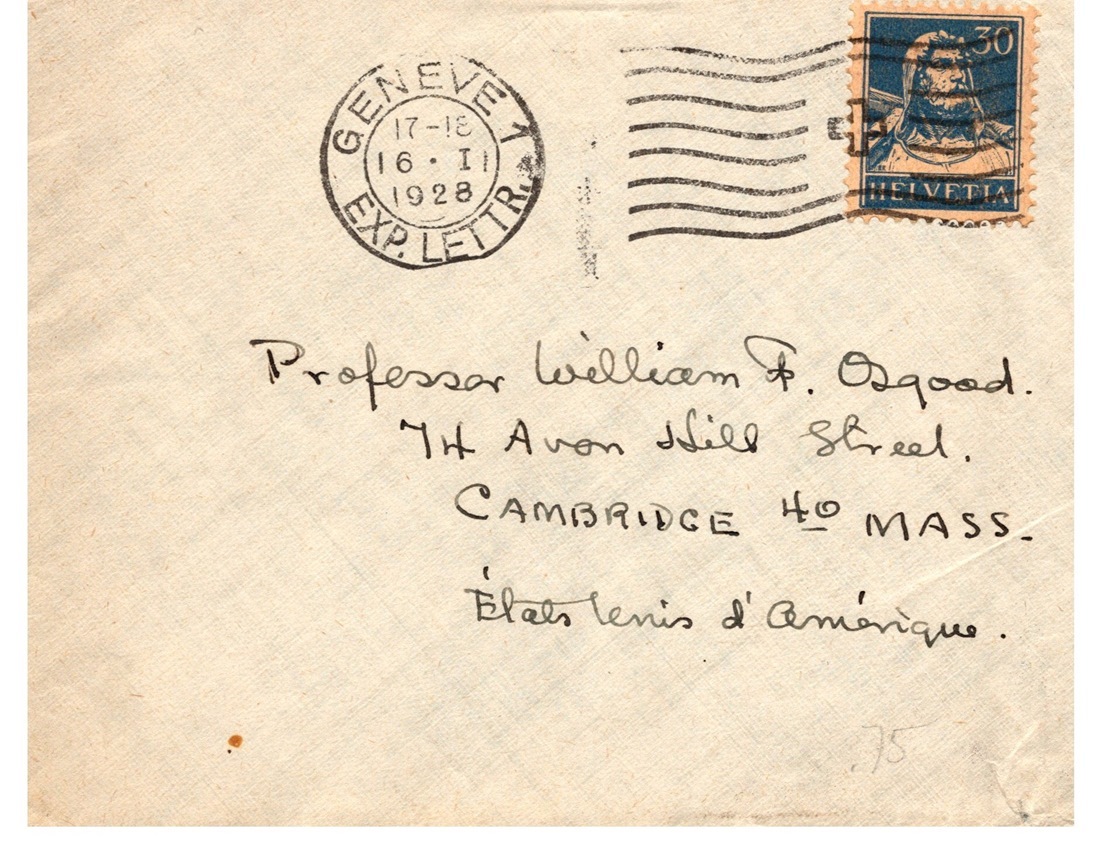 GENEVE 1
17-18
16 · II
1928
EXP. LETTR.
30
HELVETIA
Professor William F. Osgood.
74 Avon Hill Street.
CAMBRIDGE 40 MASS.
États Unis d'Amérique.
.75